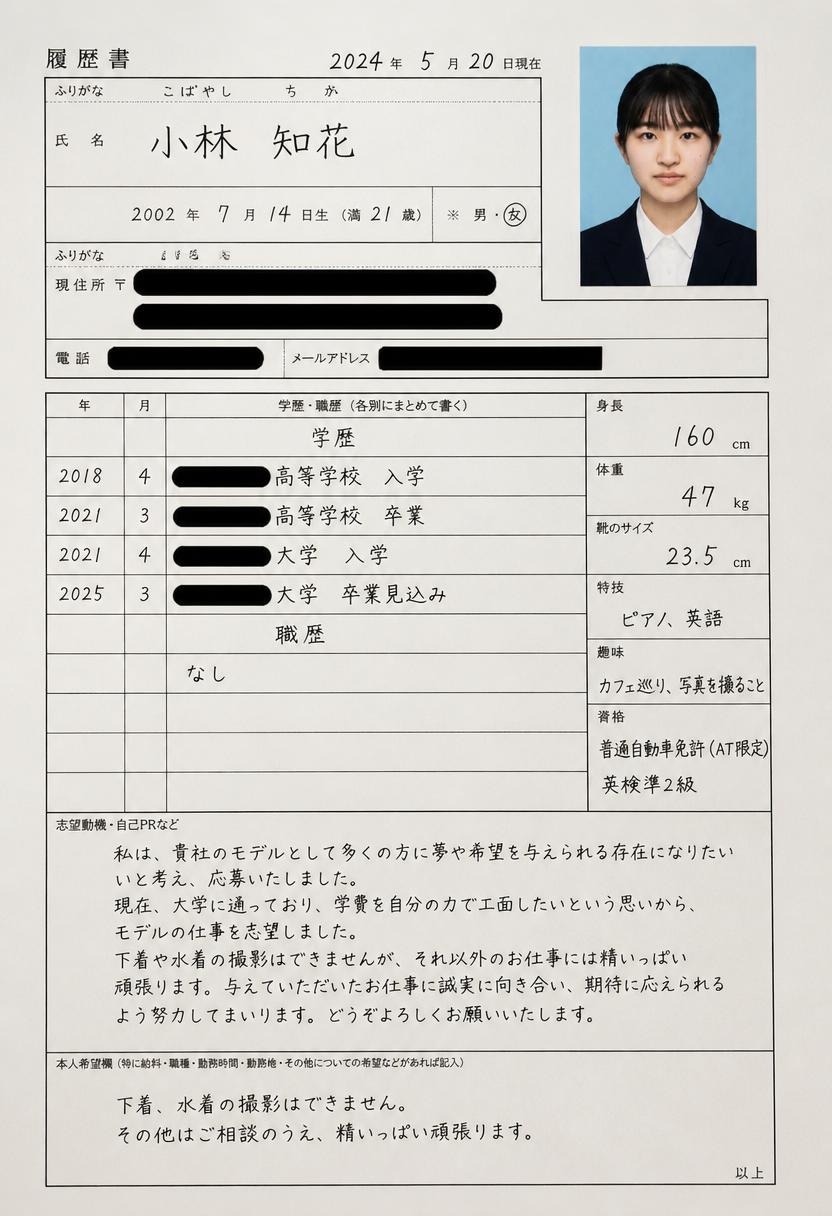 履歴書
2024 年 5 月 20 日現在
ふりがな こばやし ちか
氏 名 小林 知花
2002 年 7 月 14 日生 (満 21 歳) ※ 男・女
ふりがな
現住所 〒
電話 メールアドレス
年 月 学歴・職歴 (各別にまとめて書く)
学歴
2018 4 高等学校 入学
2021 3 高等学校 卒業
2021 4 大学 入学
2025 3 大学 卒業見込み
職歴
なし
身長
160 cm
体重
47 kg
靴のサイズ
23.5 cm
特技
ピアノ、英語
趣味
カフェ巡り、写真を撮ること
資格
普通自動車免許(AT限定)
英検準2級
志望動機・自己PRなど
私は、貴社のモデルとして多くの方に夢や希望を与えられる存在になりたい
いと考え、応募いたしました。
現在、大学に通っており、学費を自分の力で工面したいという思いから、
モデルの仕事を志望しました。
下着や水着の撮影はできませんが、それ以外のお仕事には精いっぱい
頑張ります。与えていただいたお仕事に誠実に向き合い、期待に応えられる
よう努力してまいります。どうぞよろしくお願いいたします。
本人希望欄 (特に給料・職種・勤務時間・勤務地・その他についての希望などがあれば記入)
下着、水着の撮影はできません。
その他はご相談のうえ、精いっぱい頑張ります。
以上